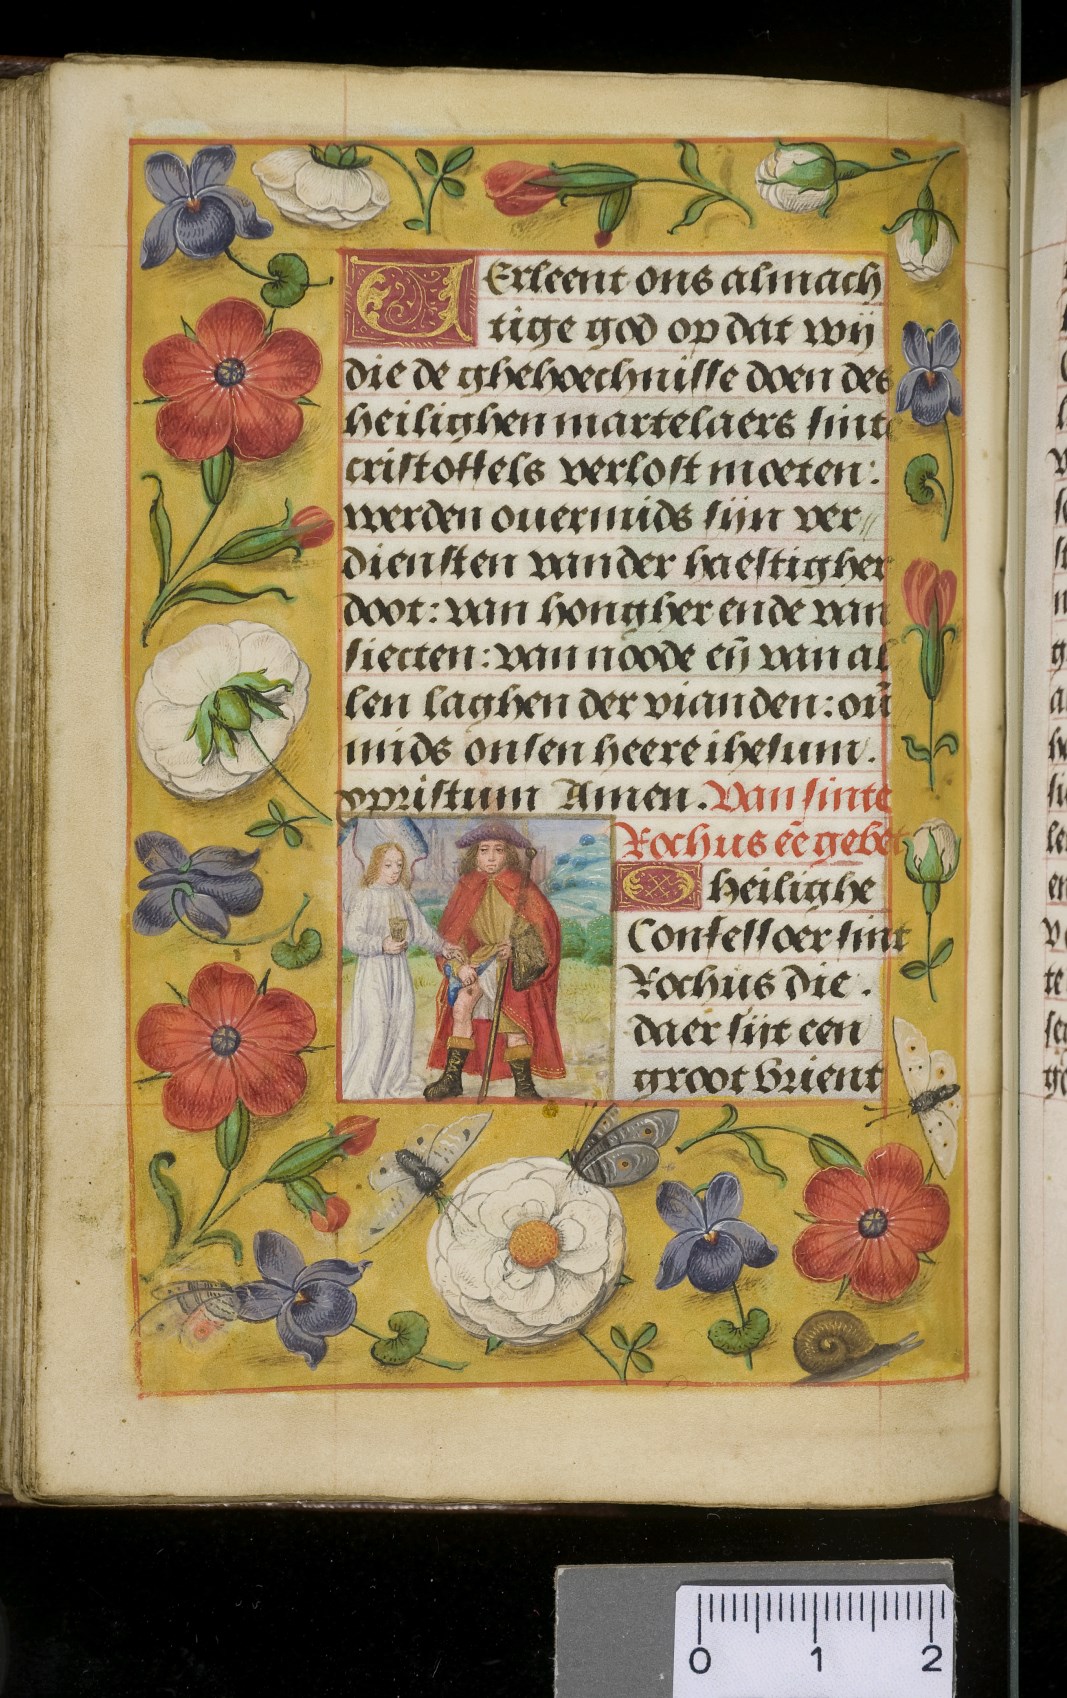 VErleent ons almach
tige god op dat wij
die de ghehoechnisse doen des
heilighen martelaers sint
cristoffels verlost moeten:
werden ouermids sijn ver//
diensten van der haestigher
doot: van hongher ende van
siecten: van noode eñ van al
len laghen der vianden: oũ
mids onsen heere ihesum.
xpristum Amen. Van sinte
Rochus eē gebet
O heilighe
Confessoer sint
Rochus die.
daer sijt een
groot vrient
0 1 2